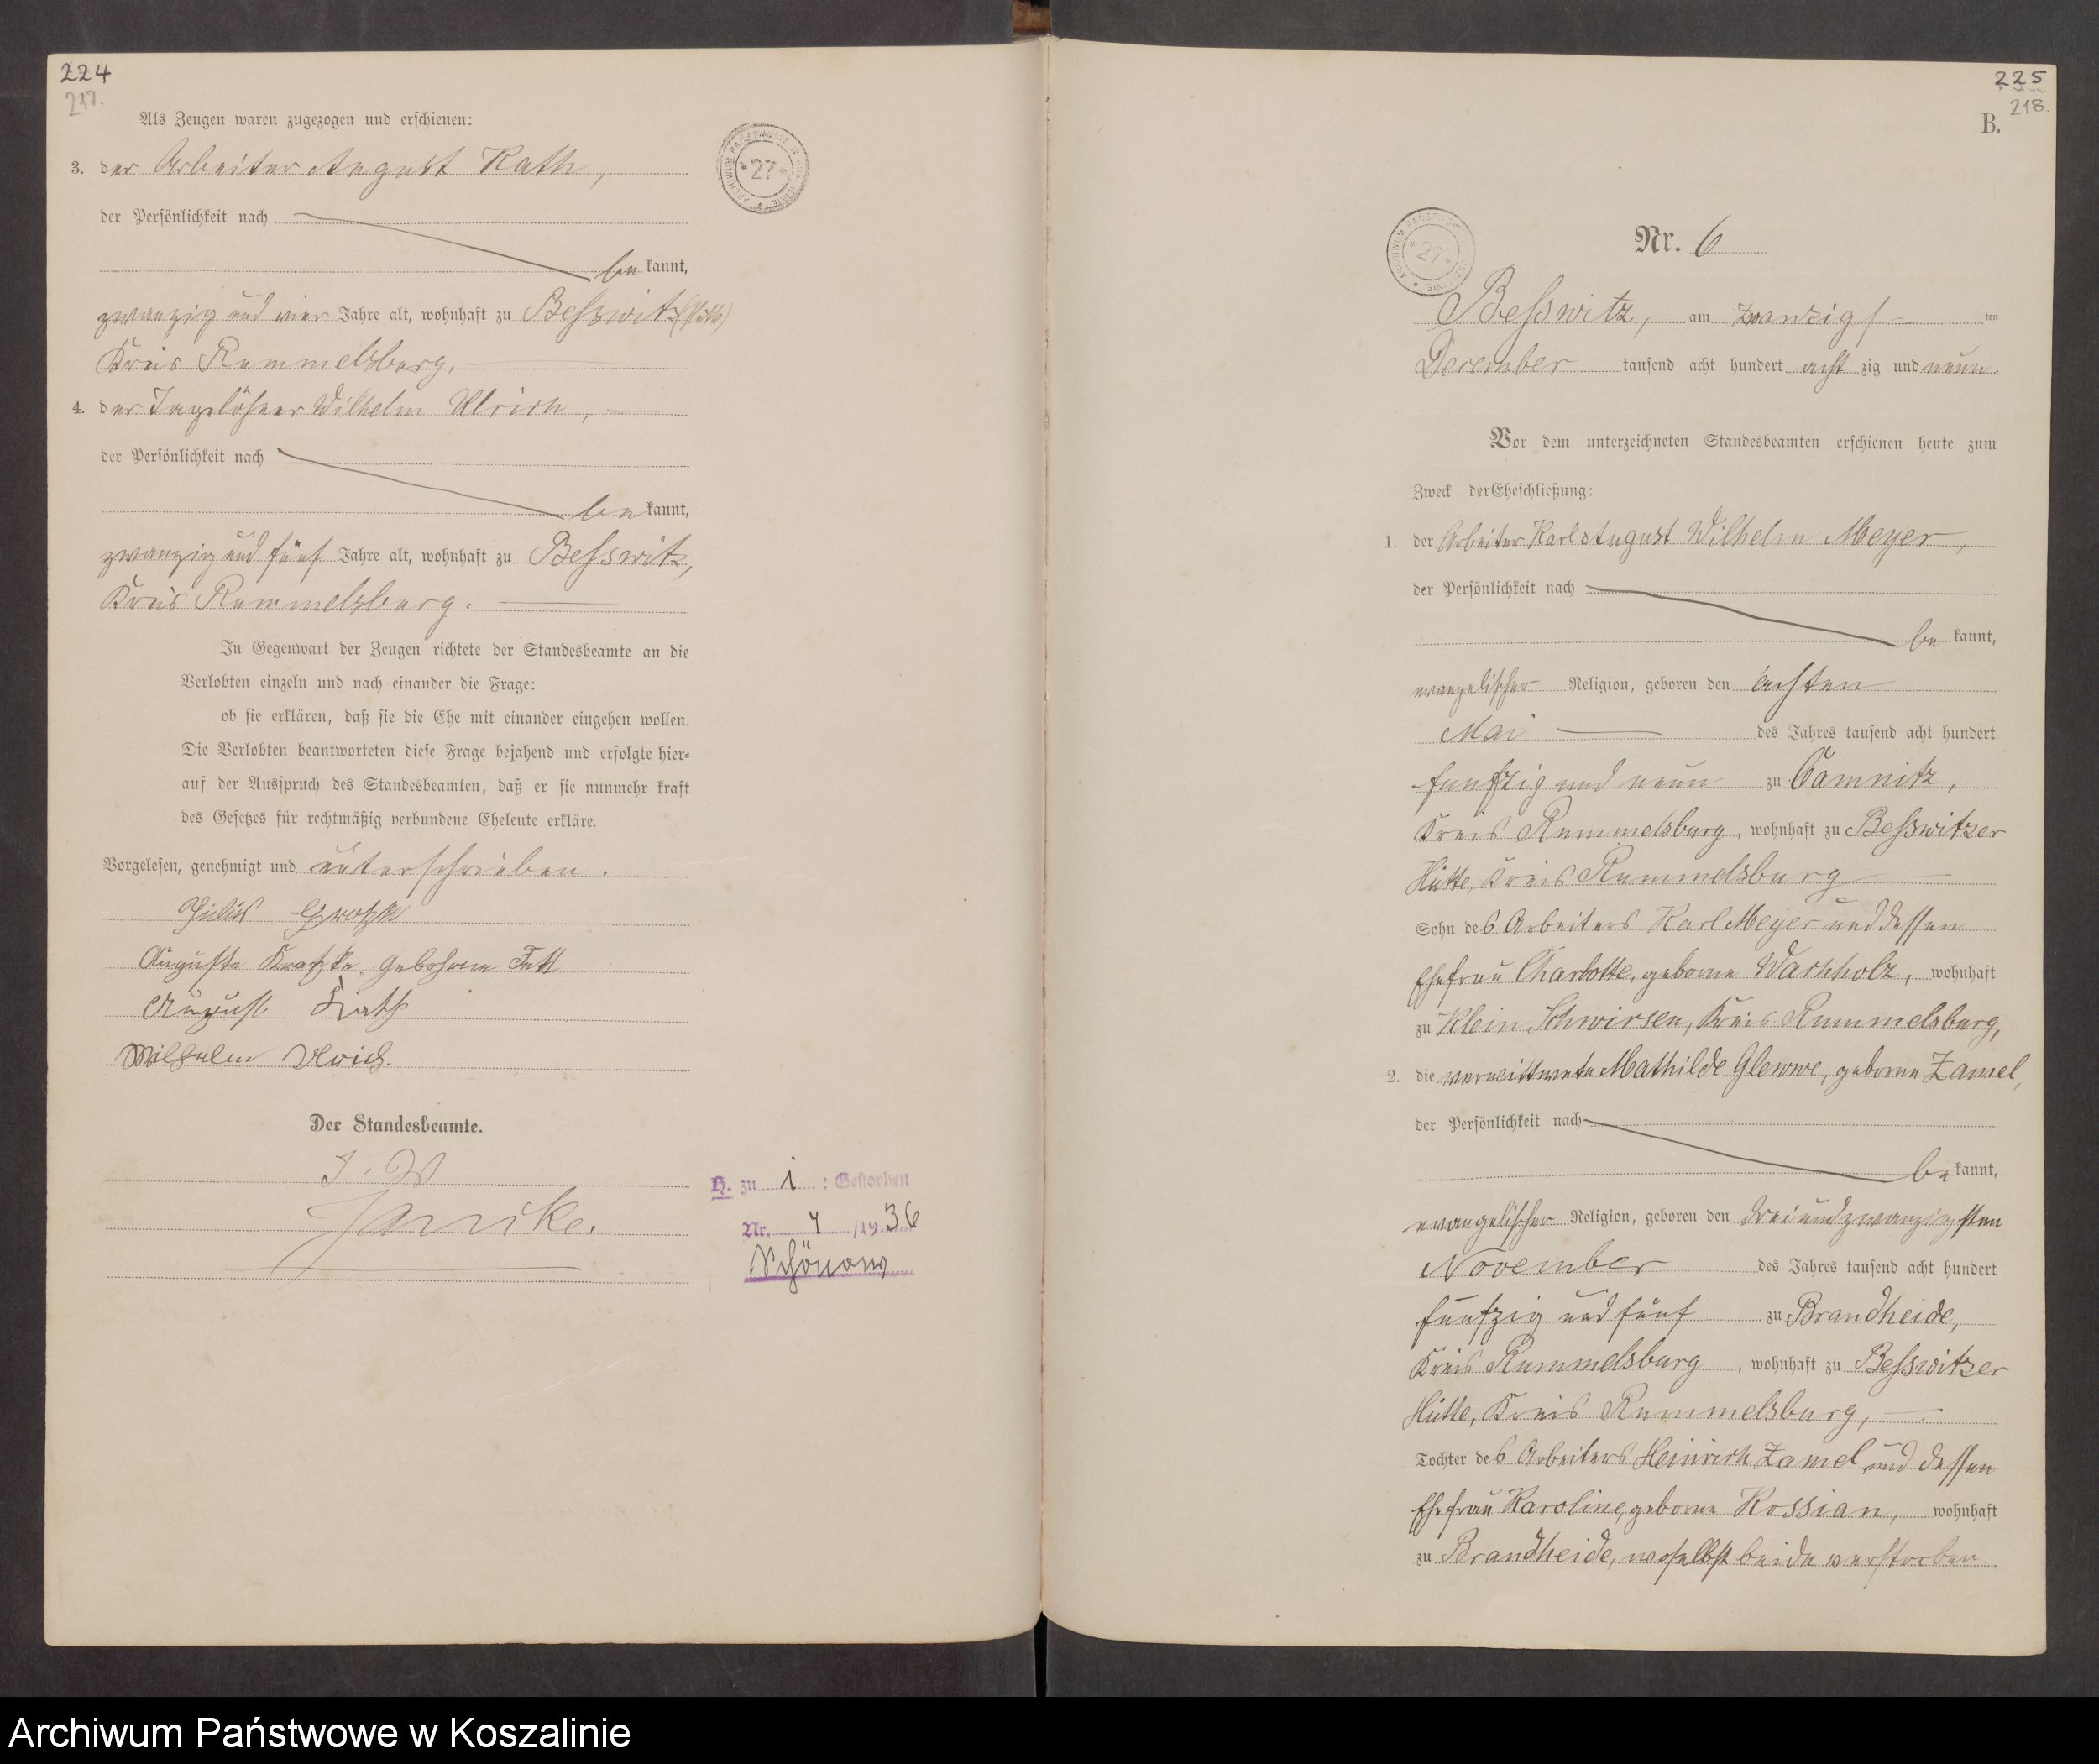 224
217.
Als Zeugen waren zugezogen und erschienen:
3. der Arbeiter August Rath,
der Persönlichkeit nach
be kannt,
zwanzig und vier Jahre alt, wohnhaft zu Besswitz (Hütte)
Kreis Rummelsburg.
4. der Tagelöhner Wilhelm Ulrich,
der Persönlichkeit nach
be kannt,
zwanzig und fünf Jahre alt, wohnhaft zu Besswitz,
Kreis Rummelsburg.
In Gegenwart der Zeugen richtete der Standesbeamte an die
Verlobten einzeln und nach einander die Frage:
ob sie erklären, daß sie die Ehe mit einander eingehen wollen.
Die Verlobten beantworteten diese Frage bejahend und erfolgte hier-
auf der Ausspruch des Standesbeamten, daß er sie nunmehr kraft
des Gesetzes für rechtmäßig verbundene Eheleute erkläre.
Vorgelesen, genehmigt und unterschrieben.
Julius
Auguste Kratzke geborene Fett
August Rath
Wilhelm Ulrich.
Der Standesbeamte.
I. V.
H. zu 1 : Gestorben
Nr. 4 /1936
Schönow
ARCHIWUM PAŃSTWOWE W KOSZALINIE
27
225
218.
B.
ARCHIWUM PAŃSTWOWE W KOSZALINIE
27
Nr. 6
Besswitz, am zwanzigs ten
December tausend acht hundert acht zig und neun.
Vor dem unterzeichneten Standesbeamten erschienen heute zum
Zweck der Eheschließung:
1. der Arbeiter Karl August Wilhelm Meyer,
der Persönlichkeit nach
be kannt,
evangelischer Religion, geboren den achten
Mai des Jahres tausend acht hundert
funfzig und neun zu Camnitz,
Kreis Rummelsburg, wohnhaft zu Besswitzer
Hütte, Kreis Rummelsburg
Sohn des Arbeiters Karl Meyer und dessen
Ehefrau Charlotte, geborne Warhholz, wohnhaft
zu Klein Schwirsen, Kreis Rummelsburg,
2. die verwittwete Mathilde Glewwe, geborne Zamel,
der Persönlichkeit nach
be kannt,
evangelischer Religion, geboren den dreiundzwanzigsten
November des Jahres tausend acht hundert
fünfzig und fünf zu Brandheide,
Kreis Rummelsburg, wohnhaft zu Besswitzer
Hütte, Kreis Rummelsburg,
Tochter des Arbeiters Heinrich Zamel und dessen
Ehefrau Karoline, geborne Kossian, wohnhaft
zu Brandheide, woselbst beide verstorben.
Archiwum Państwowe w Koszalinie